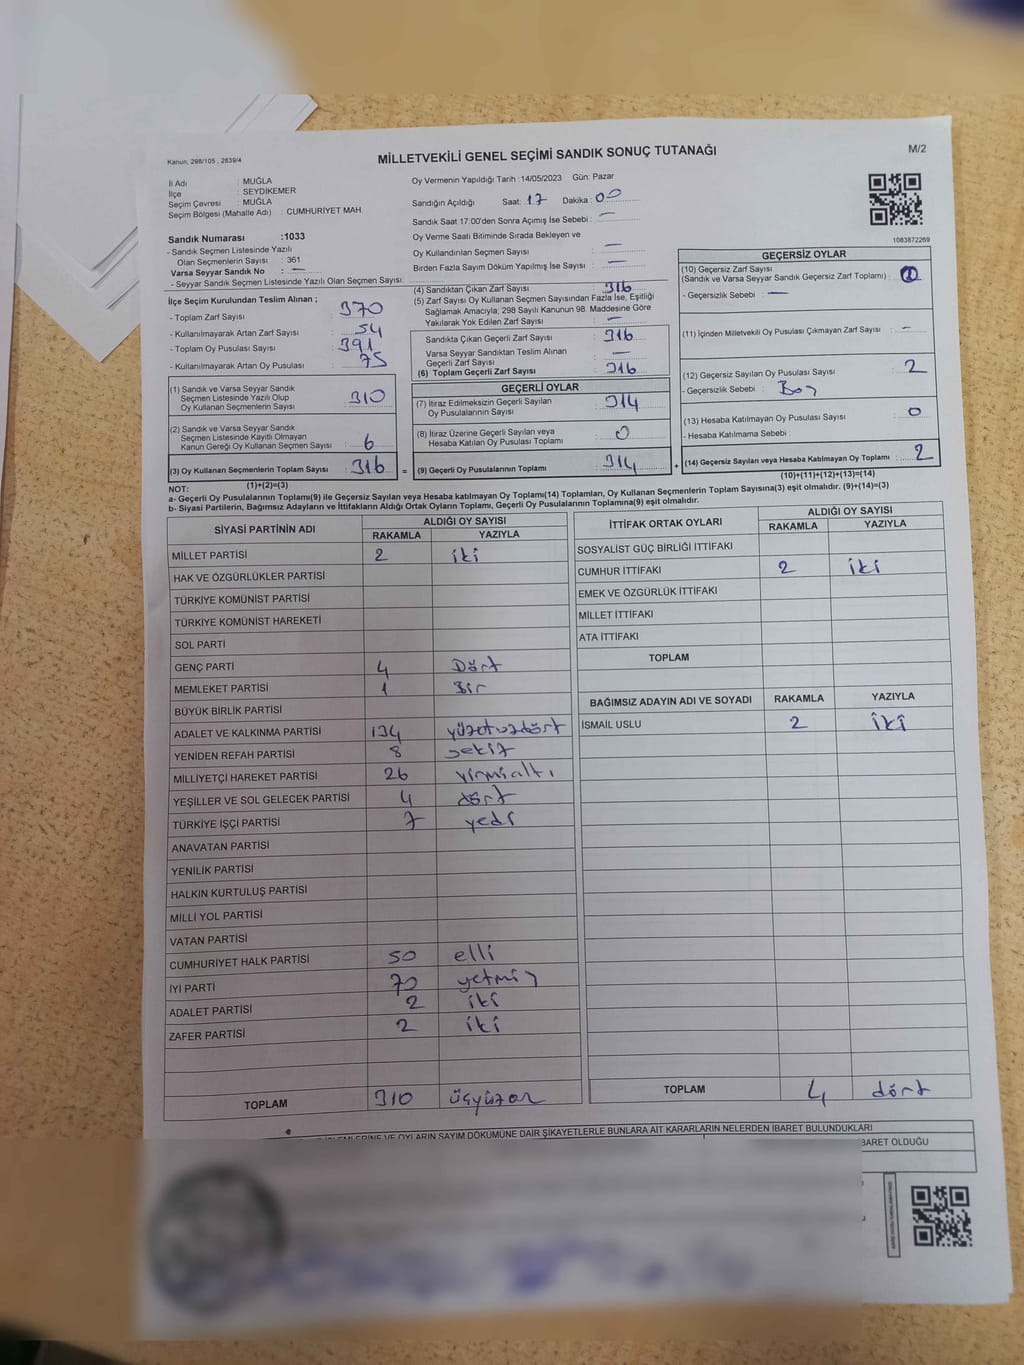 Kanun, 298/105 , 2839/4
MİLLETVEKİLİ GENEL SEÇİMİ SANDIK SONUÇ TUTANAĞI
M/2
İl Adı : MUĞLA
İlçe SEYDİKEMER
Seçim Çevresi : MUĞLA
Seçim Bölgesi (Mahalle Adı) : CUMHURİYET MAH
Sandık Numarası :1033
- Sandık Seçmen Listesinde Yazılı
Olan Seçmenlerin Sayısı : 361
Varsa Seyyar Sandık No : —
- Seyyar Sandık Seçmen Listesinde Yazılı Olan Seçmen Sayısı:
Oy Vermenin Yapıldığı Tarih :14/05/2023 Gün: Pazar
Sandığın Açıldığı Saat: 17 Dakika : 00
Sandık Saat 17:00'den Sonra Açımış İse Sebebi : —
Oy Verme Saati Bitiminde Sırada Bekleyen ve
Oy Kullandırılan Seçmen Sayısı : —
Birden Fazla Sayım Döküm Yapılmış İse Sayısı : —
1083872269
İlçe Seçim Kurulundan Teslim Alınan ;
- Toplam Zarf Sayısı : 370
- Kullanılmayarak Artan Zarf Sayısı : 54
- Toplam Oy Pusulası Sayısı : 391
- Kullanılmayarak Artan Oy Pusulası : 75
(1) Sandık ve Varsa Seyyar Sandık
Seçmen Listesinde Yazılı Olup
Oy Kullanan Seçmenlerin Sayısı : 310
(2) Sandık ve Varsa Seyyar Sandık
Seçmen Listesinde Kayıtlı Olmayan
Kanun Gereği Oy Kullanan Seçmen Sayısı : 6
(3) Oy Kullanan Seçmenlerin Toplam Sayısı : 316
(1)+(2)=(3)
(4) Sandıktan Çıkan Zarf Sayısı : 316
(5) Zarf Sayısı Oy Kullanan Seçmen Sayısından Fazla İse, Eşitliği
Sağlamak Amacıyla; 298 Sayılı Kanunun 98. Maddesine Göre
Yakılarak Yok Edilen Zarf Sayısı : —
Sandıkta Çıkan Geçerli Zarf Sayısı : 316
Varsa Seyyar Sandıktan Teslim Alınan
Geçerli Zarf Sayısı : —
(6) Toplam Geçerli Zarf Sayısı : 316
GEÇERLİ OYLAR
(7) İtiraz Edilmeksizin Geçerli Sayılan
Oy Pusulalarının Sayısı : 314
(8) İtiraz Üzerine Geçerli Sayılan veya
Hesaba Katılan Oy Pusulası Toplamı : 0
= (9) Geçerli Oy Pusulalarının Toplamı : 314
GEÇERSİZ OYLAR
(10) Geçersiz Zarf Sayısı
(Sandık ve Varsa Seyyar Sandık Geçersiz Zarf Toplamı) :
- Geçersizlik Sebebi : —
(11) İçinden Milletvekili Oy Pusulası Çıkmayan Zarf Sayısı : -
(12) Geçersiz Sayılan Oy Pusulası Sayısı : 2
- Geçersizlik Sebebi : Boş
(13) Hesaba Katılmayan Oy Pusulası Sayısı : 0
- Hesaba Katılmama Sebebi :
+ (14) Geçersiz Sayılan veya Hesaba Katılmayan Oy Toplamı : 2
(10)+(11)+(12)+(13)=(14)
NOT:
a- Geçerli Oy Pusulalarının Toplamı(9) ile Geçersiz Sayılan veya Hesaba katılmayan Oy Toplamı(14) Toplamları, Oy Kullanan Seçmenlerin Toplam Sayısına(3) eşit olmalıdır. (9)+(14)=(3)
b- Siyasi Partilerin, Bağımsız Adayların ve İttifakların Aldığı Ortak Oyların Toplamı, Geçerli Oy Pusulalarının Toplamına(9) eşit olmalıdır.
SİYASİ PARTİNİN ADI ALDIĞI OY SAYISI
RAKAMLA YAZIYLA
MİLLET PARTİSİ 2 iki
HAK VE ÖZGÜRLÜKLER PARTİSİ
TÜRKİYE KOMÜNİST PARTİSİ
TÜRKİYE KOMÜNİST HAREKETİ
SOL PARTİ
GENÇ PARTİ 4 Dört
MEMLEKET PARTİSİ 1 Bir
BÜYÜK BİRLİK PARTİSİ
ADALET VE KALKINMA PARTİSİ 134 yüzotuzdört
YENİDEN REFAH PARTİSİ 8 sekiz
MİLLİYETÇİ HAREKET PARTİSİ 26 yirmialtı
YEŞİLLER VE SOL GELECEK PARTİSİ 4 dört
TÜRKİYE İŞÇİ PARTİSİ 7 yedi
ANAVATAN PARTİSİ
YENİLİK PARTİSİ
HALKIN KURTULUŞ PARTİSİ
MİLLİ YOL PARTİSİ
VATAN PARTİSİ
CUMHURİYET HALK PARTİSİ 50 elli
İYİ PARTİ 70 yetmiş
ADALET PARTİSİ 2 iki
ZAFER PARTİSİ 2 iki
TOPLAM 310 üçyüzon
İTTİFAK ORTAK OYLARI ALDIĞI OY SAYISI
RAKAMLA YAZIYLA
SOSYALİST GÜÇ BİRLİĞİ İTTİFAKI
CUMHUR İTTİFAKI 2 iki
EMEK VE ÖZGÜRLÜK İTTİFAKI
MİLLET İTTİFAKI
ATA İTTİFAKI
TOPLAM
BAĞIMSIZ ADAYIN ADI VE SOYADI RAKAMLA YAZIYLA
İSMAİL USLU 2 iki
TOPLAM 4 dört
İŞLEMLERİNE VE OYLARIN SAYIM DÖKÜMÜNE DAİR ŞİKAYETLERLE BUNLARA AİT KARARLARIN NELERDEN İBARET BULUNDUKLARI
BARET OLDUĞU